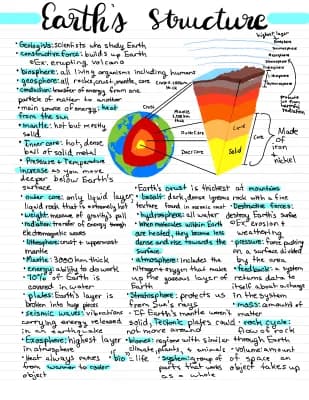 Earth's Structure
• Geologists: scientists who study Earth
• constructive force: builds up Earth
↳Ex: erupting volcano
• biosphere: all living organisms including humans
• geosphere: all rocks, crust, mantle, core
• conduction: transfer of energy from one
particle of matter to another
• main source of energy: heat
from the sun
• mantle: hot but mostly
solid
• Inner core: hot, dense
ball of solid metal
• Pressure + Temperature
increase as you move
deeper below Earth's
surface
• outer core: only liquid layer
liquid rock that is extremely hot
• weight: measure of gravity's pull
• radiation: transfer of energy through
electromagnetic waves
• lithosphere: crust + uppermost
mantle
• Mantle: 3000 km thick
• energy: ability to do work
• 70% of Earth is
covered in water
• plates: Earth's layer is
broken into huge pieces
• seismic waves: vibrations
carrying energy released
in an earthquake
• Exosphere: highest layer
in atmosphere
• heat always moves
from warmer to cooler
object
highest layer
Exosphere
Crust
Mantle
Outer Core
Inner Core
Core
Solid
Made
of
iron
+
Nickel
• Earth's crust is thickest at mountains
• basalt: dark, dense igneous rock with a fine
texture found in oceanic crust
• hydrosphere: all water
• When molecules within Earth
are heated, they become less
dense and rise towards the
surface
• atmosphere: includes the
nitrogen + oxygen that make
up the gaseous layer of
Earth
• Stratosphere: protects us
from Sun's rays
• If Earth's mantle weren't
solid, Tectonic plates could
not move around
• biomes: regions with similar
climate, plants, + animals
• bio = life
• System: group of
parts that works
as a whole
• Destructive Forces:
destroy Earth's surface
↳Ex: erosion +
weathering
• pressure: force pushing
on a surface divided
by the area
• feedback: a system
returns data to
itself about a change
in the system
• mass: amount of
matter
• rock cycle:
flow of rock
through Earth
• Volume: amount
of space an
object takes up